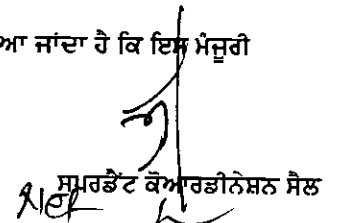 ਆ ਜਾਂਦਾ ਹੈ ਕਿ ਇਸ ਮੰਜੂਰੀ
ਸੁਪਰਡੈਂਟ ਕੋਆਰਡੀਨੇਸ਼ਨ ਸੈਲ